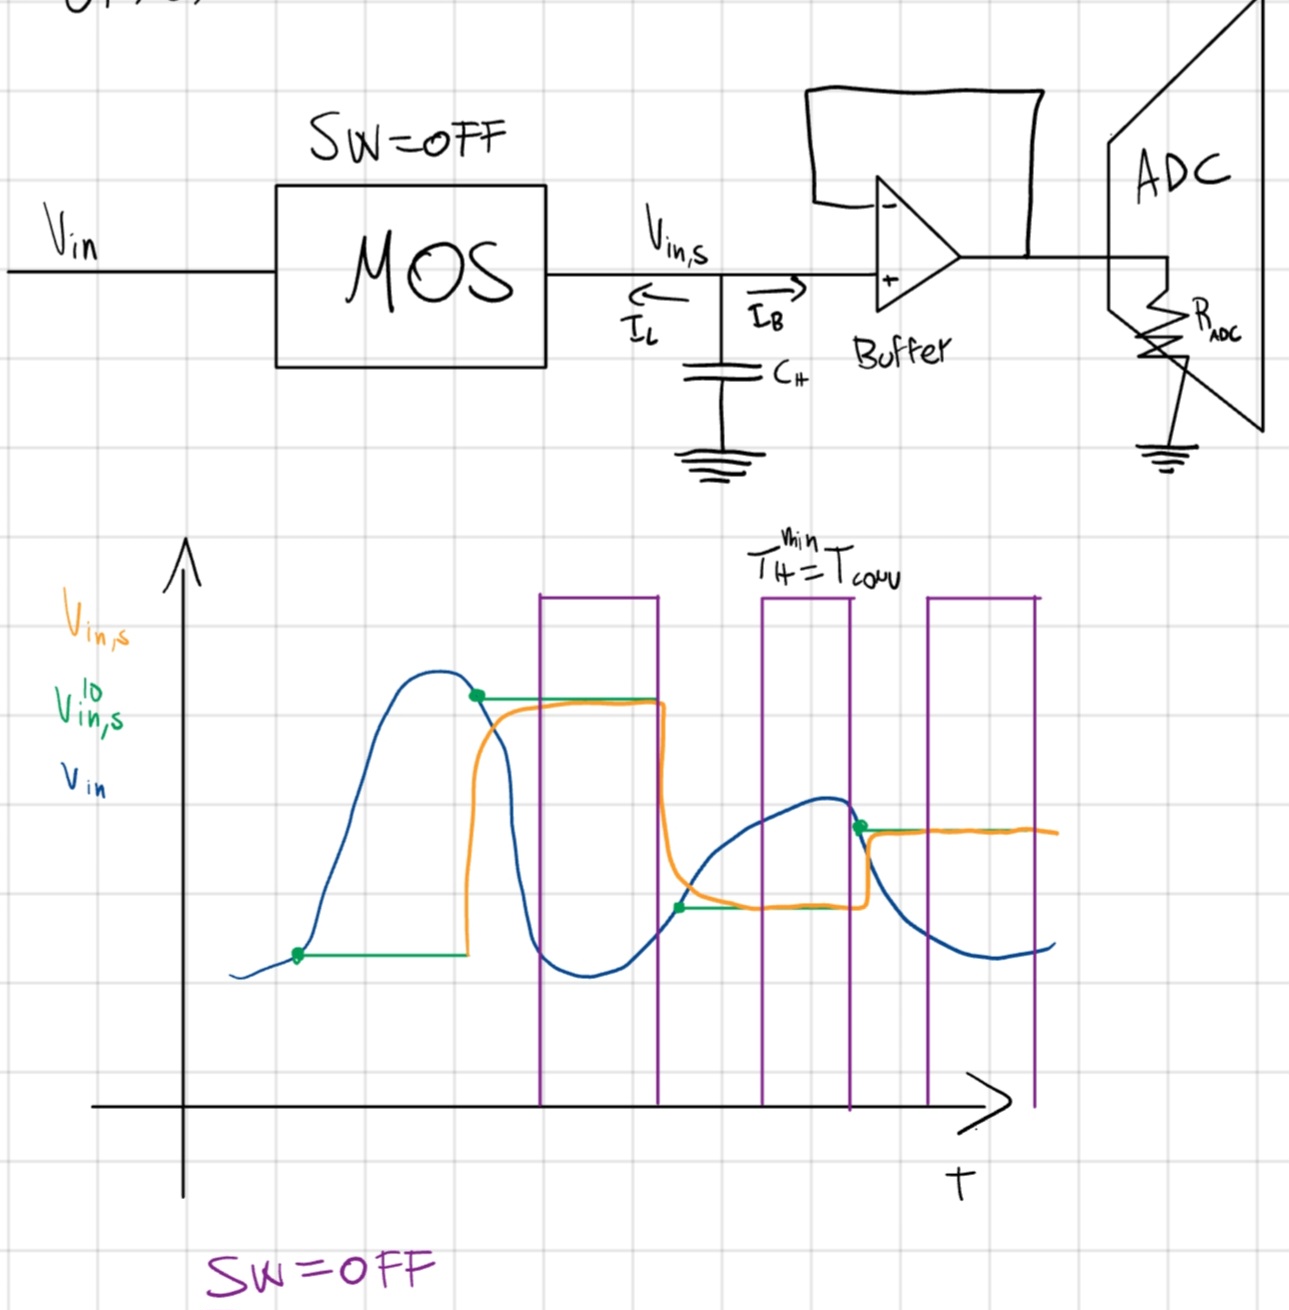 SW=OFF
Vin
MOS
Vin,s
IL
IB
CH
-
+
Buffer
ADC
RADC
THmin=Tconv
Vin,s
Vin,sID
Vin
T
SW=OFF